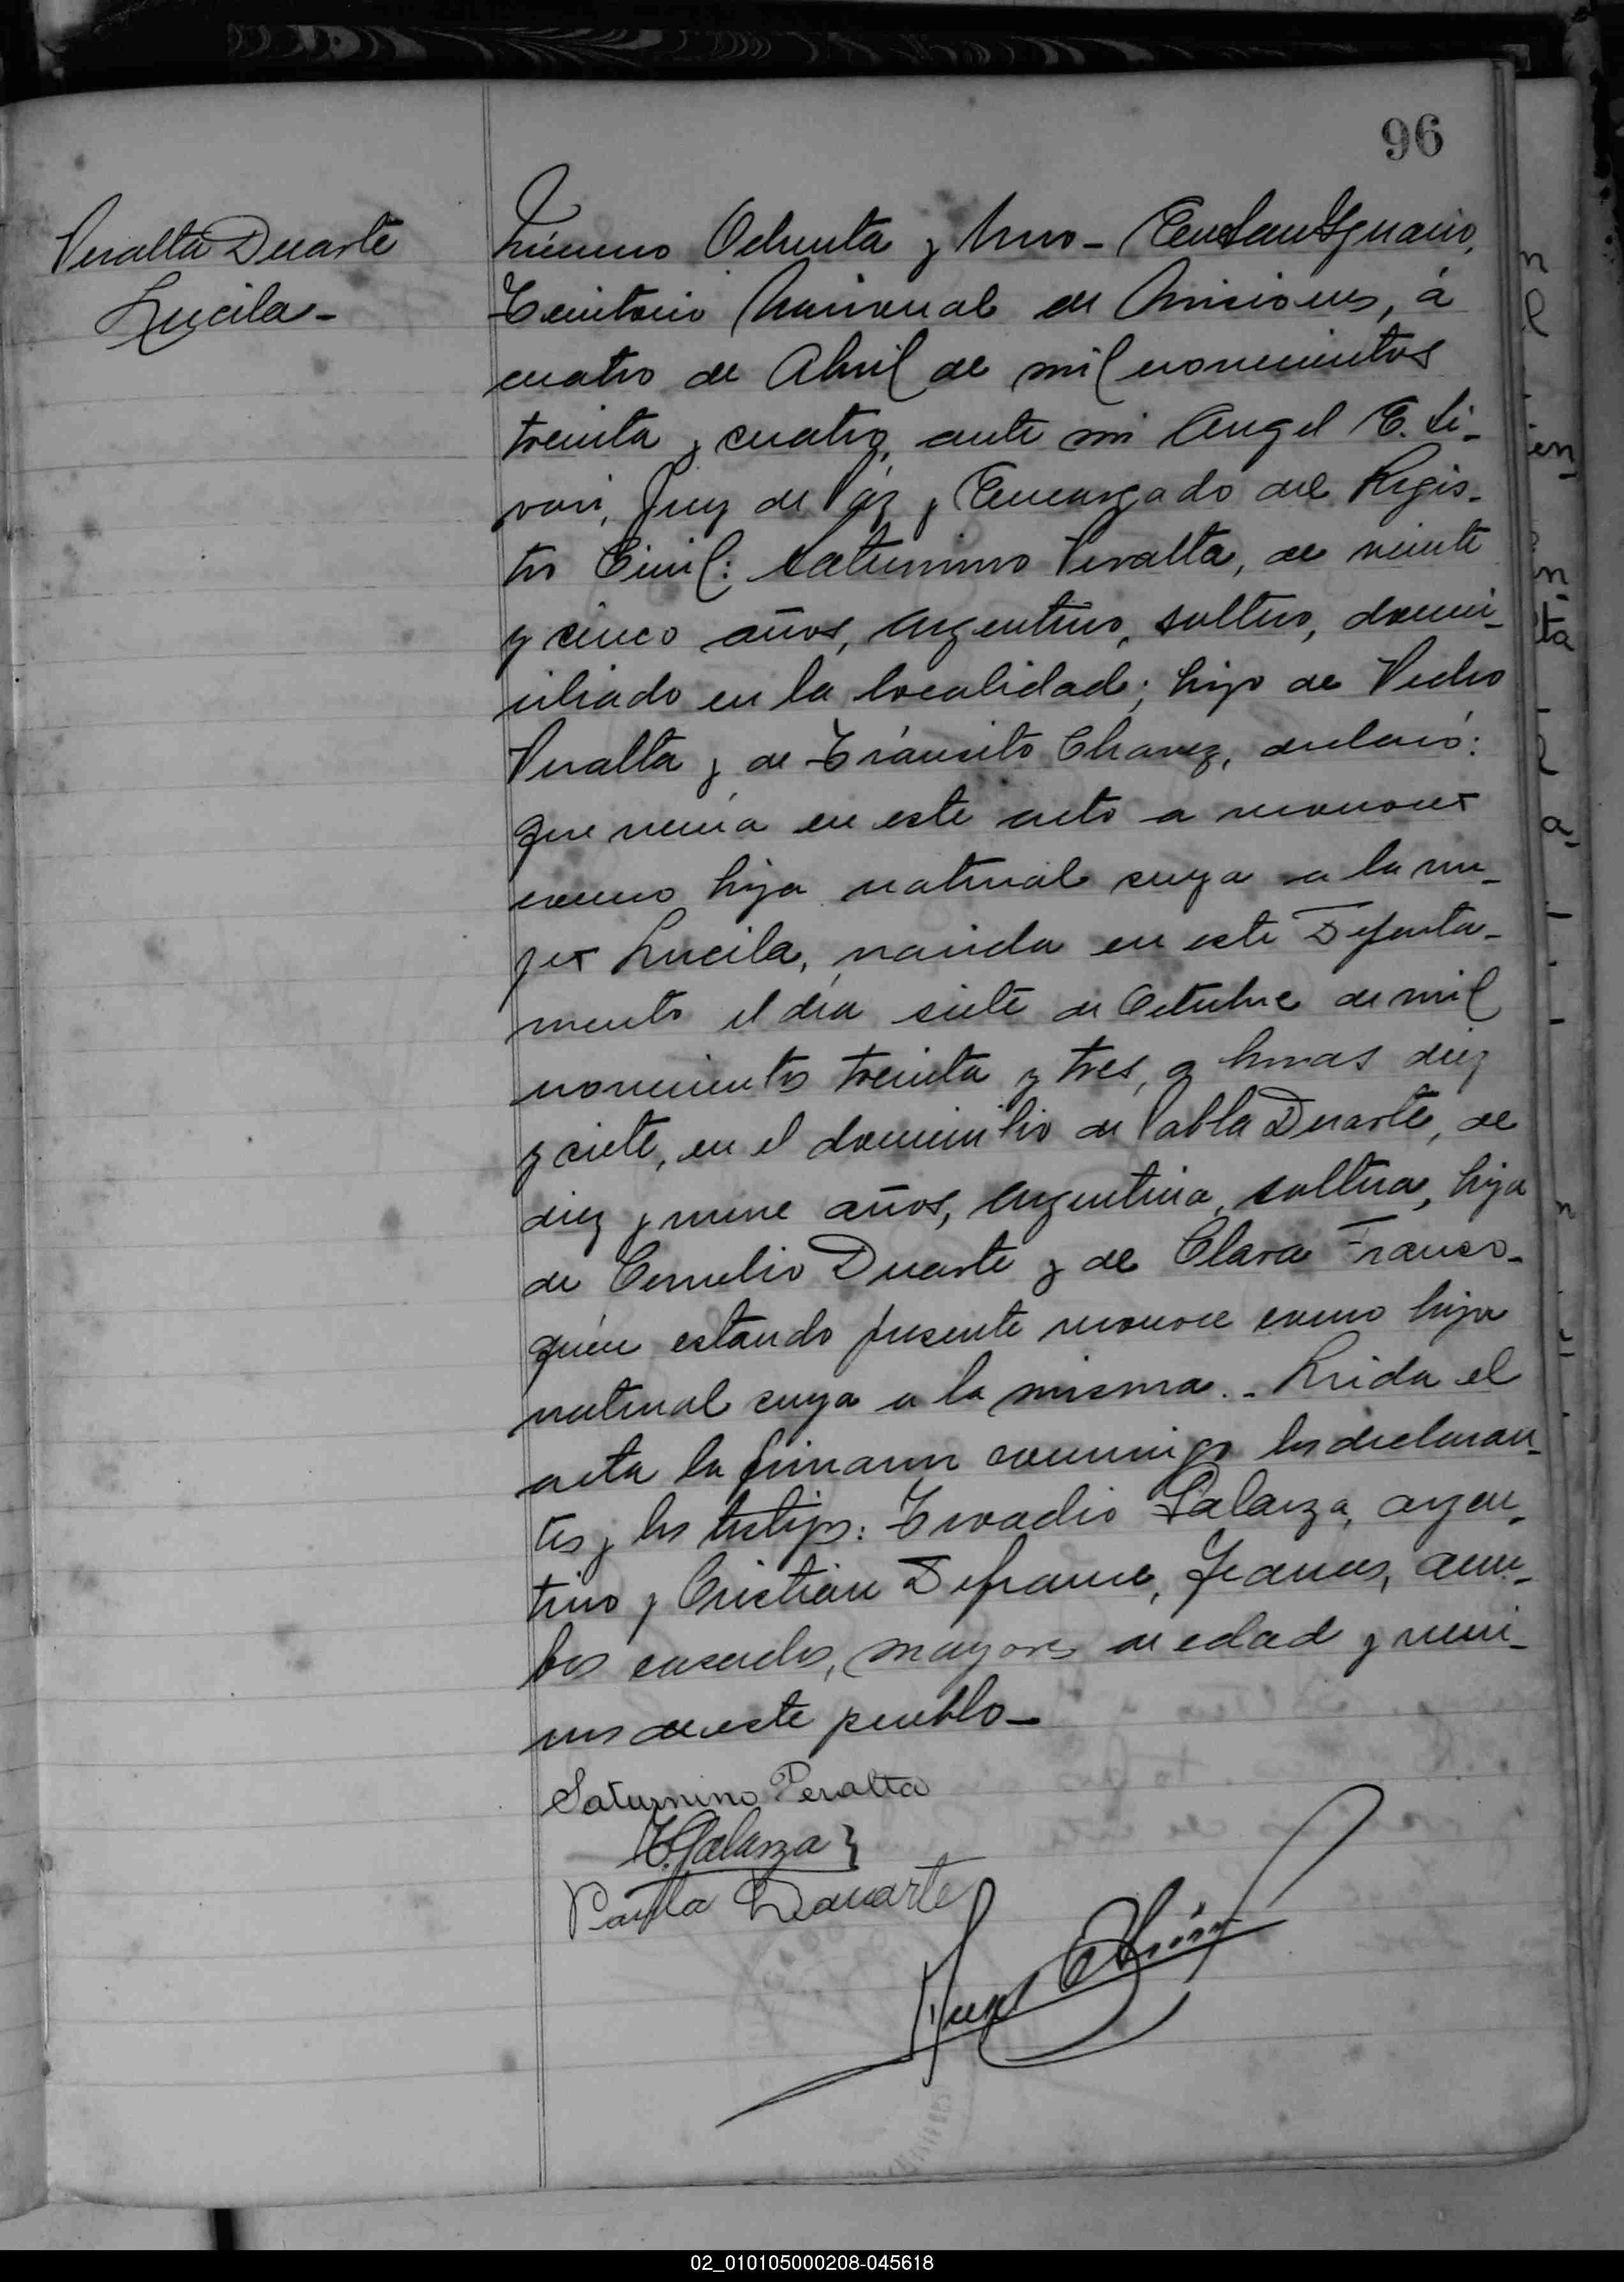 96
Peralta Duarte
Lucila-
Número Ochenta y Uno- En San Ygnacio,
Territorio Nacional de Misiones, á
cuatro de Abril de mil novecientos
treinta y cuatro, ante mi Angel E.
Juez de Páz y Encargado del Regis-
tro Civil: Saturnino Peralta, de veinte
y cinco años, Argentino, soltero, domi-
ciliado en la localidad; hijo de Pedro
Peralta y de Tránsito Chavez, declaró:
Que venía en este acto a reconocer
como hija natural suya a la mu-
jer Lucila, nacida en este Departa-
mento el día siete de Octubre de mil
novecientos treinta y tres, a horas diez
y siete, en el domicilio de Pabla Duarte, de
diez y nueve años, Argentina, soltera, hija
de Cornelio Duarte y de Clara Franco-
quién estando presente reconoce como hija
natural suya a la misma.- Leída el
acta la firmaron conmigo los declaran-
tes y los testigos: Galarza, argen-
tino y Cristián Defrance, Francés, am-
bos casados, mayores de edad y veci-
nos de este pueblo-
Saturnino Peralta
T. Galarza
Pavla Duuarte
02_010105000208-045618